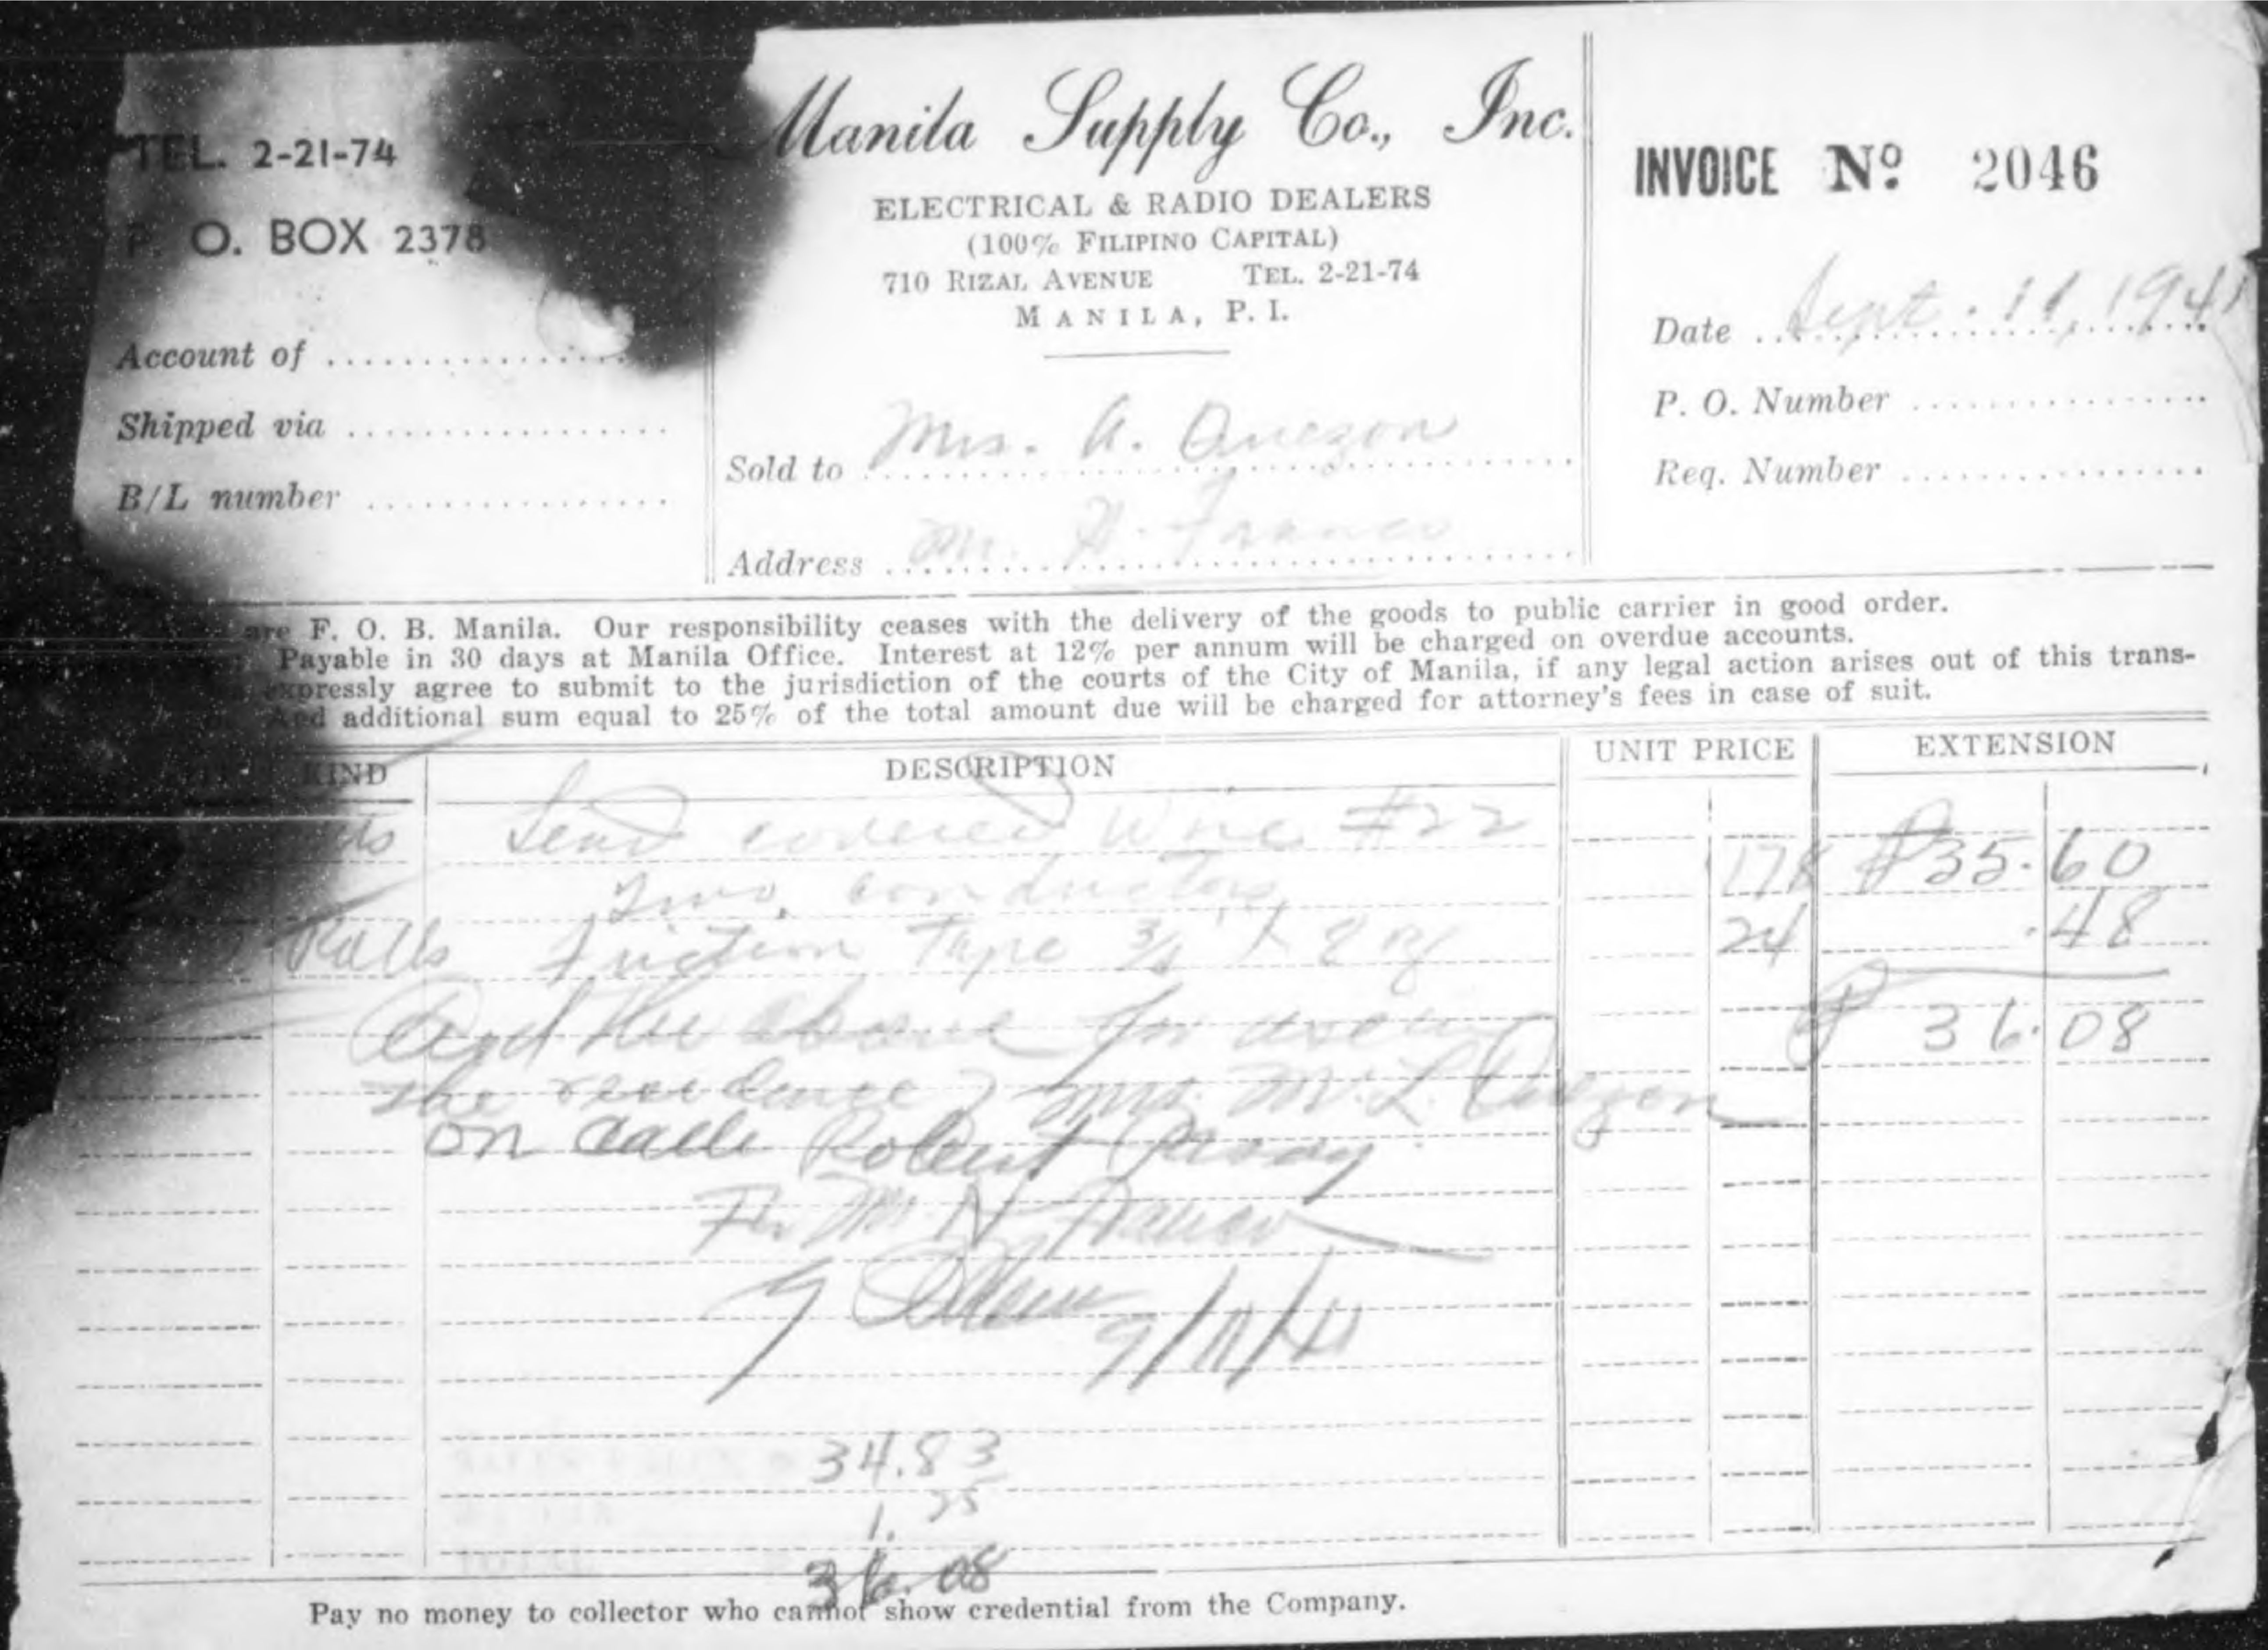 TEL. 2-21-74
P. O. BOX 2378
Account of
Shipped via
B/L number
Manila Supply Co., Inc.
ELECTRICAL & RADIO DEALERS
(100% FILIPINO CAPITAL)
710 RIZAL AVENUE TEL. 2-21-74
MANILA, P. I.
Sold to Mrs. A. Quezon
Address Mr. N. Franco
INVOICE Nº 2046
Date Sept. 11, 1941
P. O. Number
Req. Number
are F. O. B. Manila. Our responsibility ceases with the delivery of the goods to public carrier in good order.
Payable in 30 days at Manila Office. Interest at 12% per annum will be charged on overdue accounts.
expressly agree to submit to the jurisdiction of the courts of the City of Manila, if any legal action arises out of this trans-
And additional sum equal to 25% of the total amount due will be charged for attorney's fees in case of suit.
KIND DESCRIPTION UNIT PRICE EXTENSION
Lead covered Wire #22
Two conductors 178 ₱35.60
Rolls Friction Tape 3/4" X 8 oz 24 .48
the above for use in ₱ 36.08
the residence of Mrs. M. L. Quezon
on Calle Robert
For Mr. N. Franco
9/11/41
34.83
1.25
36.08
Pay no money to collector who cannot show credential from the Company.